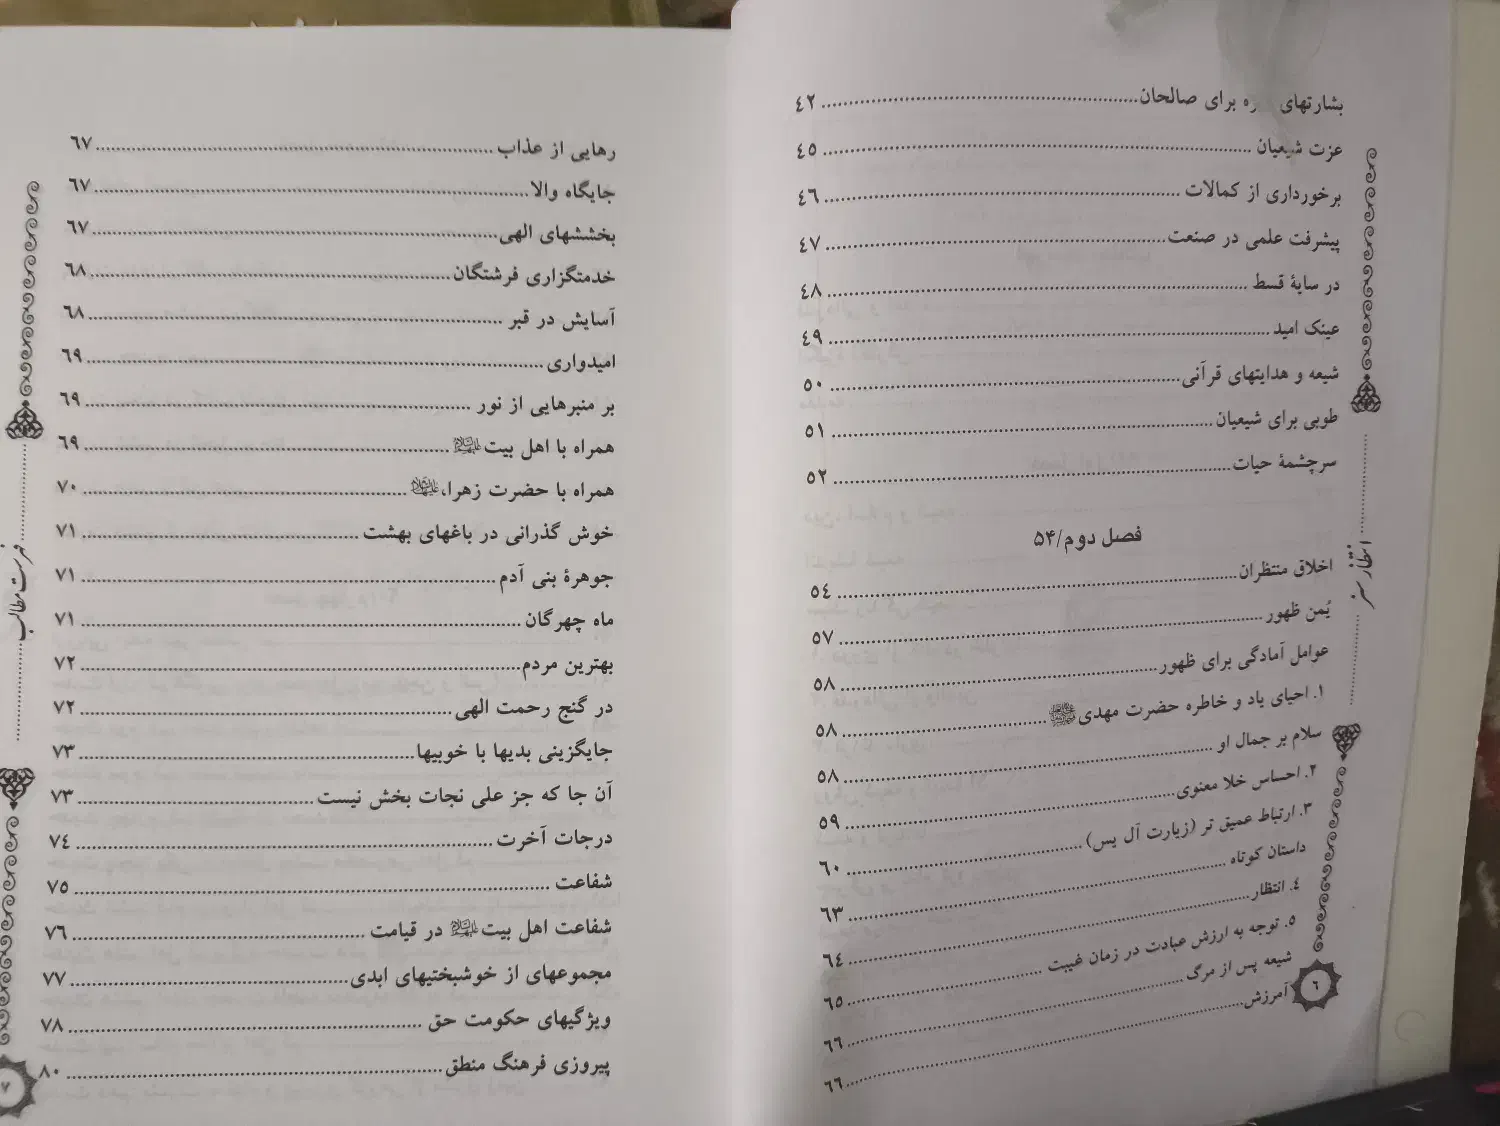 بشارتهای ره برای صالحان ٤٢
عزت شیعیان ٤٥
برخورداری از کمالات ٤٦
پیشرفت علمی در صنعت ٤٧
در سایهٔ قسط ٤٨
عینک امید ٤٩
شیعه و هدایتهای قرآنی ٥٠
طوبی برای شیعیان ٥١
سرچشمهٔ حیات ٥٢
فصل دوم/۵۴
اخلاق منتظران ٥٤
یُمن ظهور ٥٧
عوامل آمادگی برای ظهور ٥٨
۱. احیای یاد و خاطره حضرت مهدی ٥٨
سلام بر جمال او ٥٨
۲. احساس خلا معنوی ٥٩
۳. ارتباط عمیق تر (زیارت آل یس) ٦٠
داستان کوتاه ٦٣
٤. انتظار ٦٤
٥. توجه به ارزش عبادت در زمان غیبت ٦٥
شیعه پس از مرگ ٦٦
آمرزش ٦٦
انتظار سبز
٦
رهایی از عذاب ٦٧
جایگاه والا ٦٧
بخششهای الهی ٦٧
خدمتگزاری فرشتگان ٦٨
آسایش در قبر ٦٨
امیدواری ٦٩
بر منبرهایی از نور ٦٩
همراه با اهل بیت علیهم‌السلام ٦٩
همراه با حضرت زهراء علیهاالسلام ٧٠
خوش گذرانی در باغهای بهشت ٧١
جوهرهٔ بنی آدم ٧١
ماه چهرگان ٧١
بهترین مردم ٧٢
در گنج رحمت الهی ٧٢
جایگزینی بدیها با خوبیها ٧٣
آن جا که جز علی نجات بخش نیست ٧٣
درجات آخرت ٧٤
شفاعت ٧٥
شفاعت اهل بیت علیهم‌السلام در قیامت ٧٦
مجموعهای از خوشبختیهای ابدی ٧٧
ویژگیهای حکومت حق ٧٨
پیروزی فرهنگ منطق ٨٠
فهرست مطالب
٧